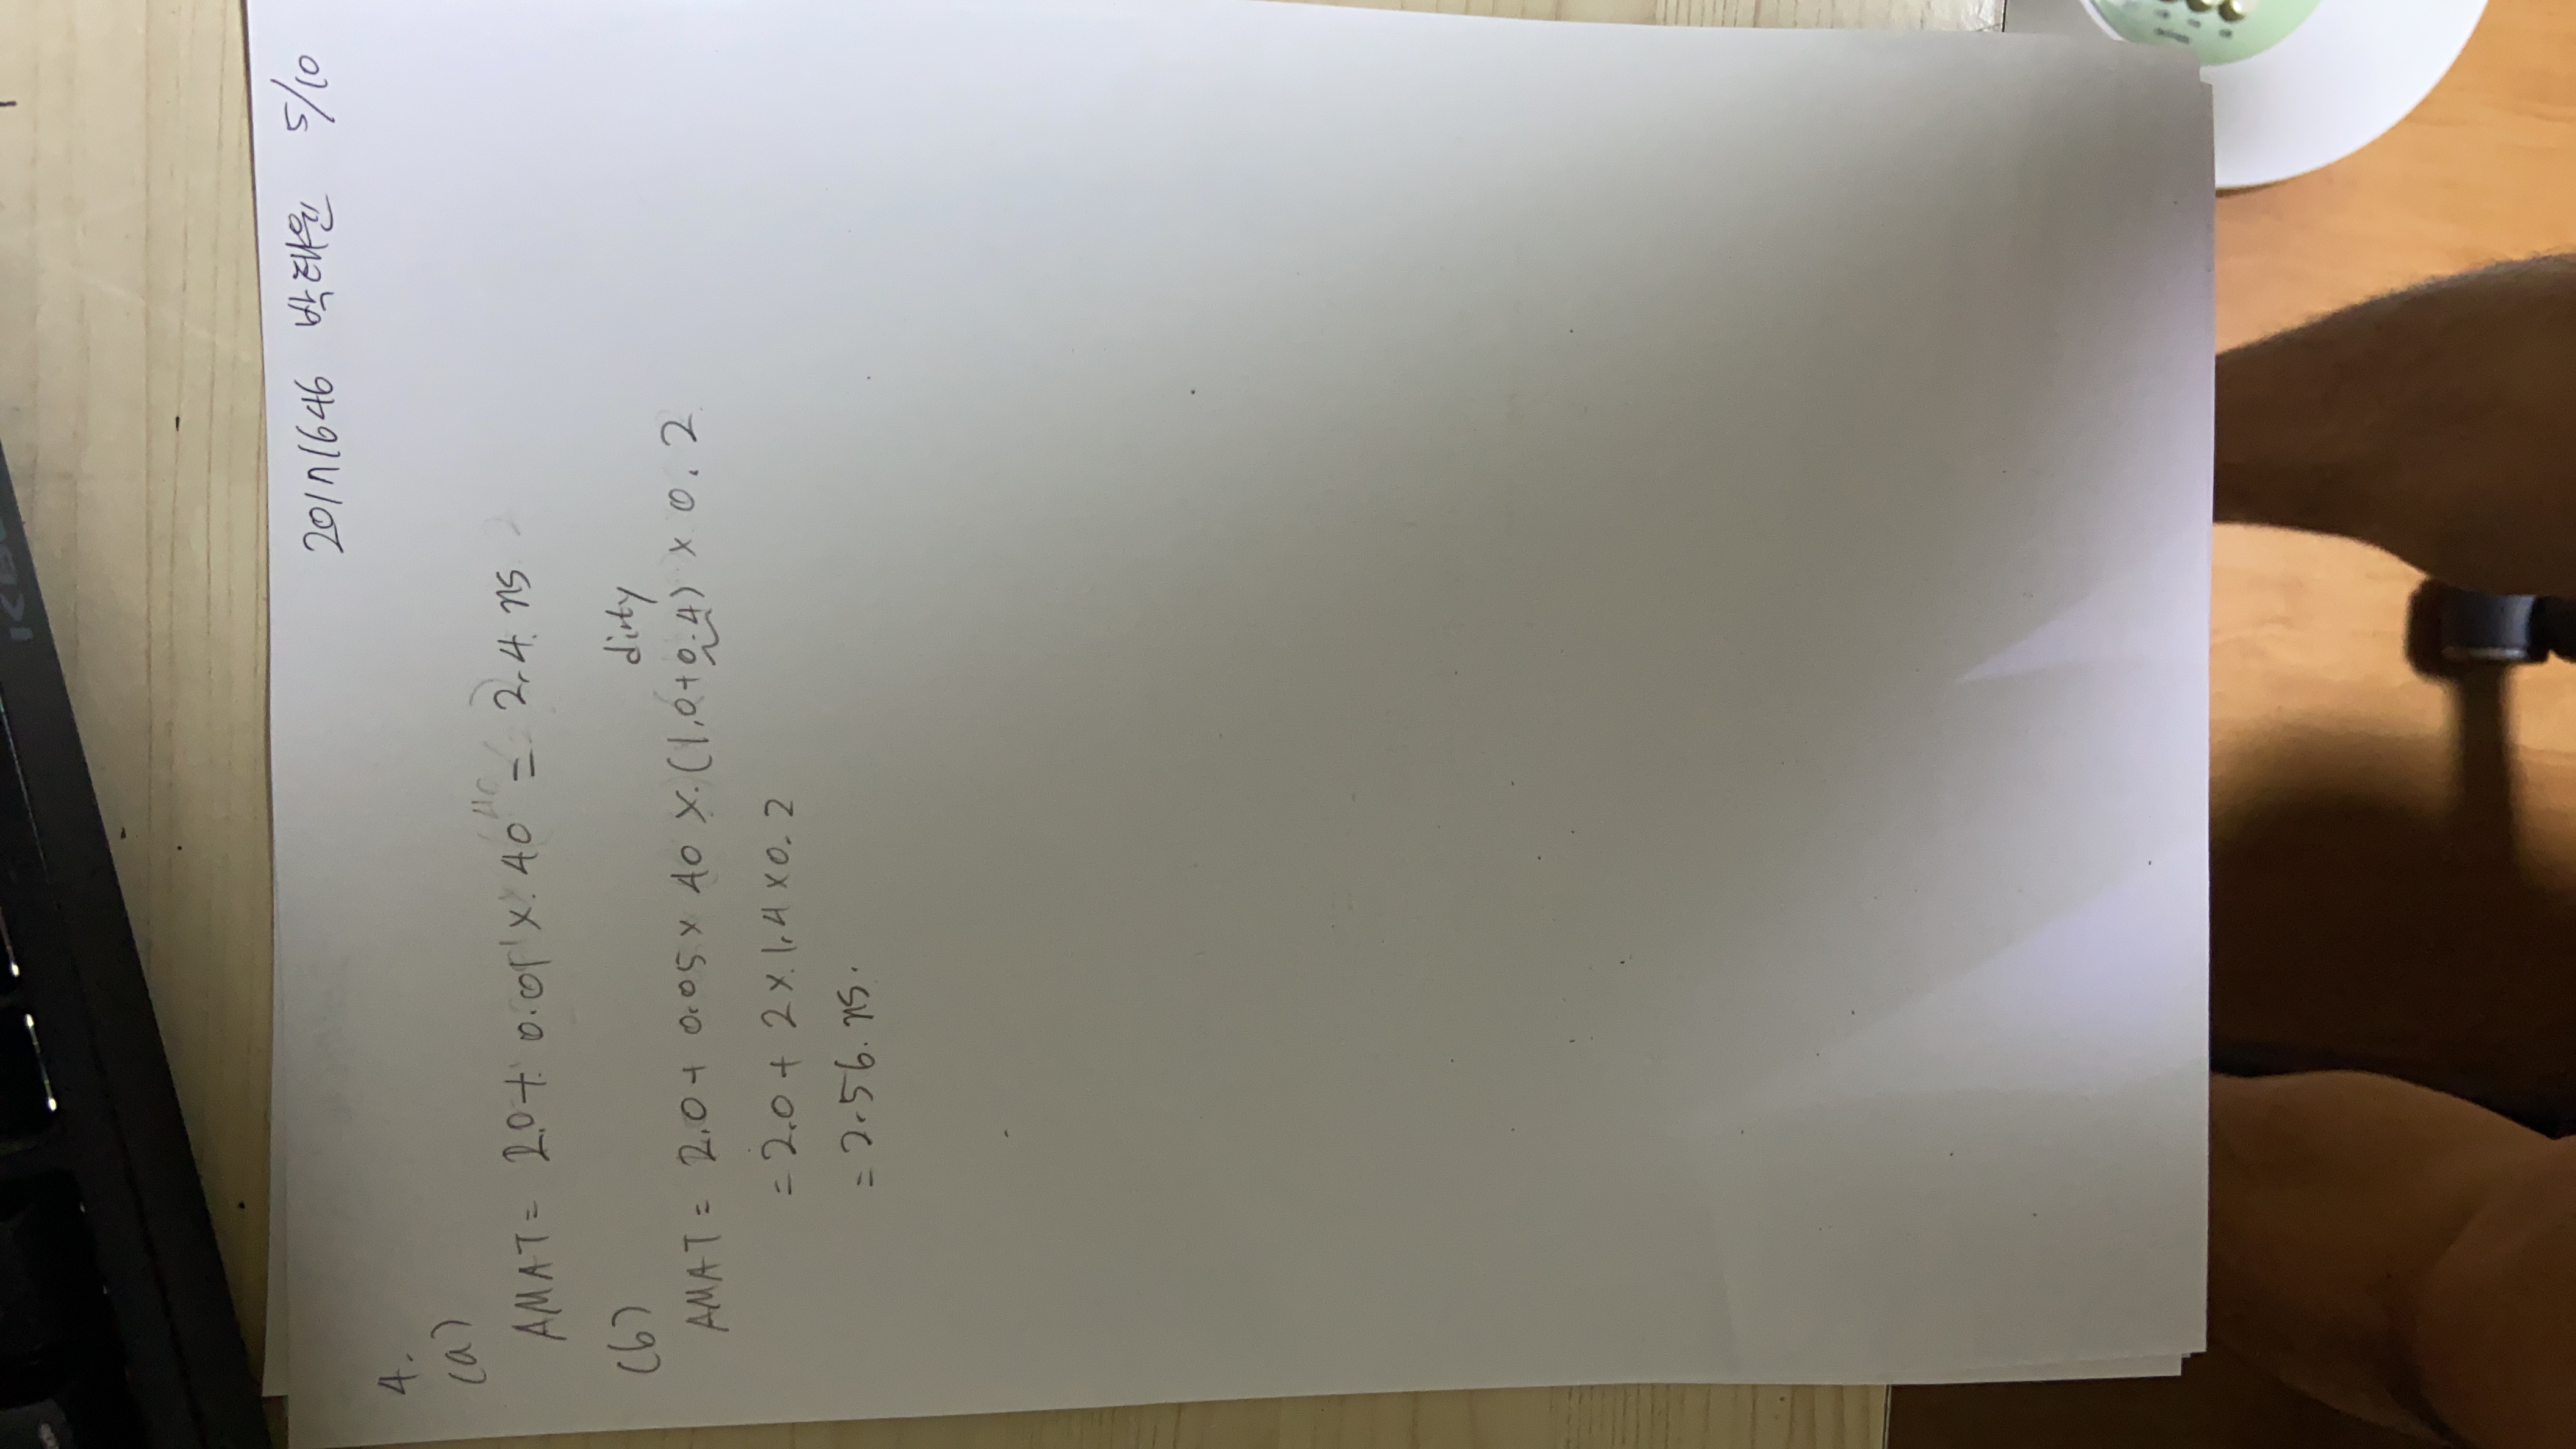 20171646 박태윤 5/10
4.
(a)
AMAT = 2.0 + 0.01 × 40 = 2.4 ns
(b)
dirty
AMAT = 2.0 + 0.05 × 40 × (1.0+0.4) × 0.2
= 2.0 + 2 × 1.4 × 0.2
= 2.56 ns.